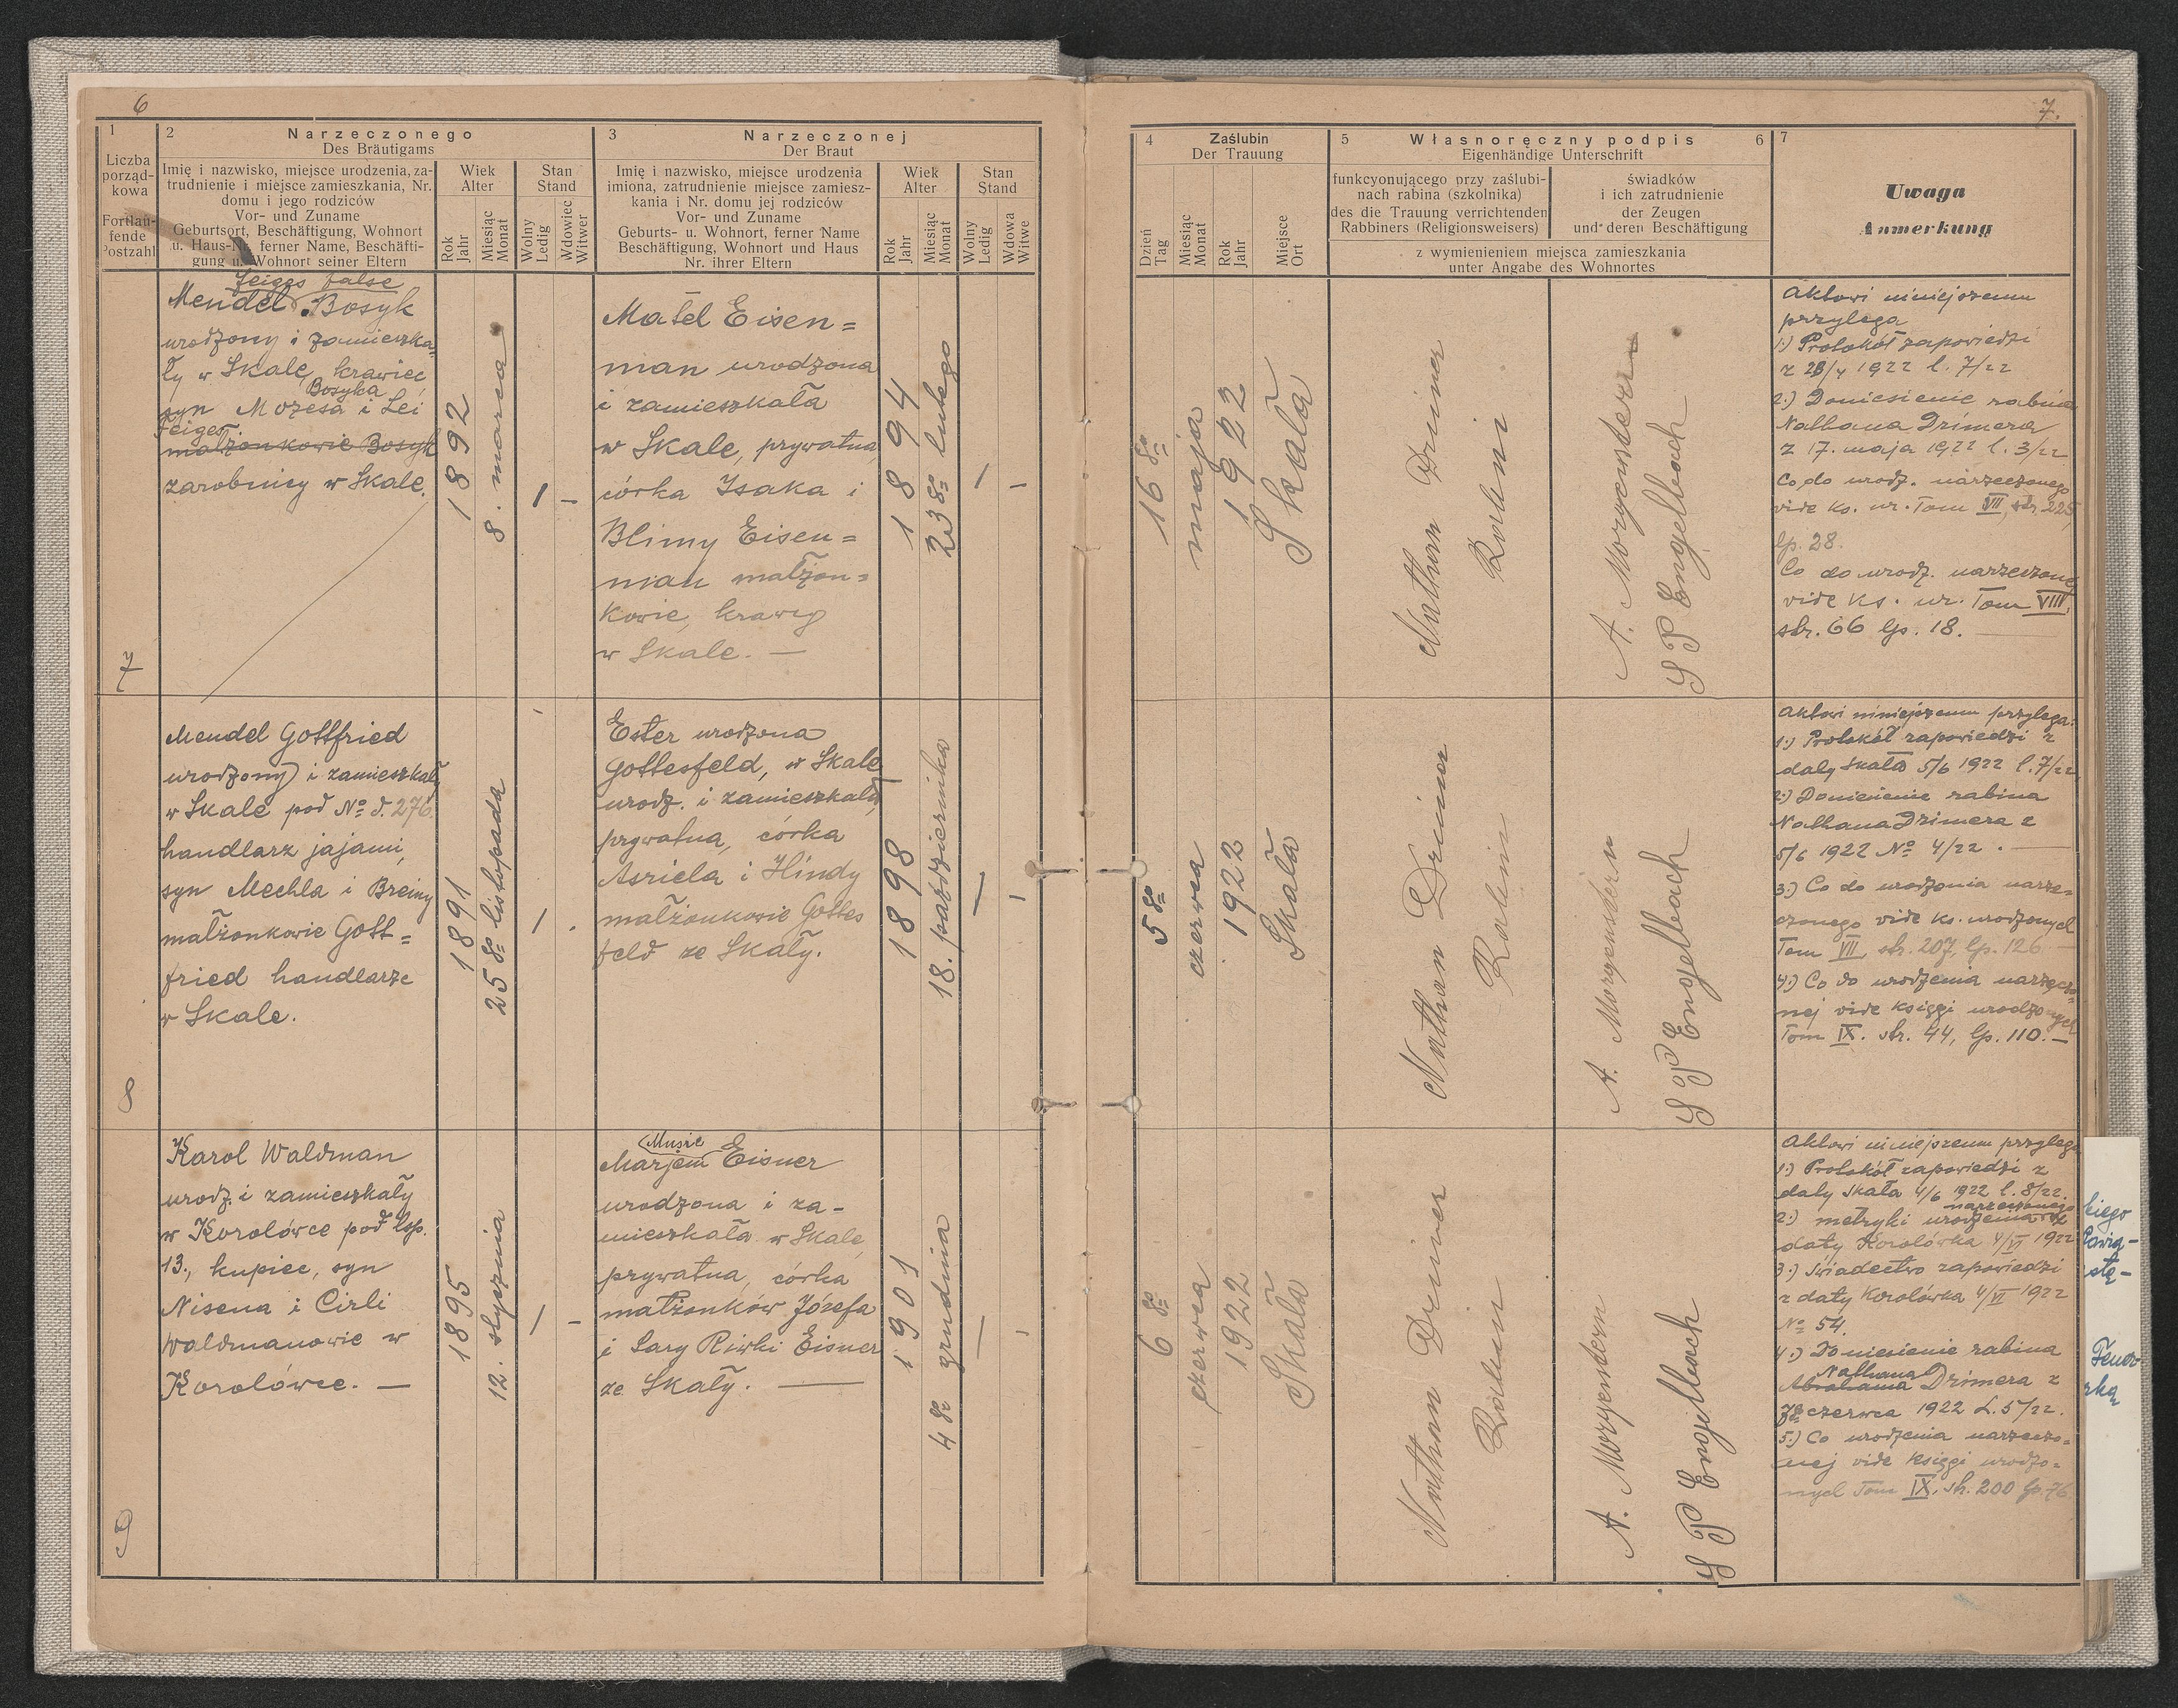 6
1
Liczba
porząd-
kowa
Fortlau-
fende
Postzahl
2 Narzeczonego
Des Bräutigams
Imię i nazwisko, miejsce urodzenia, za-
trudnienie i miejsce zamieszkania, Nr.
domu i jego rodziców
Vor- und Zuname
Geburtsort, Beschäftigung, Wohnort
u. Haus-Nr. ferner Name, Beschäfti-
gung u. Wohnort seiner Eltern
Wiek
Alter
Rok
Jahr
Miesiąc
Monat
Stan
Stand
Wolny
Ledig
Wdowiec
Witwer
3 Narzeczonej
Der Braut
Imię i nazwisko, miejsce urodzenia
imiona, zatrudnienie miejsce zamiesz-
kania i Nr. domu jej rodziców
Vor- und Zuname
Geburts- u. Wohnort, ferner Name
Beschäftigung, Wohnort und Haus
Nr. ihrer Eltern
Wiek
Alter
Rok
Jahr
Miesiąc
Monat
Stan
Stand
Wolny
Ledig
Wdowa
Witwe
7
Feiges false
Mendel Bosyk
urodzony i zamieszka-
ły w Skale, krawiec
Bosyka
syn Mozesa i Lei
Feiges
małżonkowie Bosyk
zarobnicy w Skale.
1892
8. marca
Matel Eisen=
man urodzona
i zamieszkała
w Skale, prywatna,
córka Isaka i
Blimy Eisen=
man małżon=
kowie, krawcy
w Skale. —
1894
23go lutego
8
Mendel Gottfried
urodzony i zamieszkały
w Skale pod No d. 276.
handlarz jajami,
syn Mechla i Breiny
małżonkowie Gott=
fried handlarze
w Skale.
1891
25go listopada
Ester urodzona
Gottesfeld, w Skale
urodz. i zamieszkała,
prywatna, córka
Asriela i Hindy
małżonkowie Gottes
feld ze Skały.
1898
18. października
9
Karol Waldman
urodz. i zamieszkały
w Korolówce pod lsp.
13., kupiec, syn
Nisena i Cirli
Waldmanowie w
Korolówce. —
1895
12. stycznia
Musie
Marjem Eisner
urodzona i za-
mieszkała w Skale,
prywatna, córka
małżonków Józefa
i Sary Riwki Eisner
ze Skały. —
1901
4go grudnia
7.
4 Zaślubin
Der Trauung
Dzień
Tag
Miesiąc
Monat
Rok
Jahr
Miejsce
Ort
5 Własnoręczny podpis 6
Eigenhändige Unterschrift
funkcyonującego przy zaślubi-
nach rabina (szkolnika)
des die Trauung verrichtenden
Rabbiners (Religionsweisers)
świadków
i ich zatrudnienie
der Zeugen
und deren Beschäftigung
z wymienieniem miejsca zamieszkania
unter Angabe des Wohnortes
7
Uwaga
Anmerkung
16go
maja
1922
Skała
Nathan Drimer
Rabin
A. Morgenstern
S P Engelbach
Aktowi niniejszemu
przylega
1.) Protokół zapowiedzi
z 28/4 1922 l. 7/22
2.) Doniesienie rabina
Nathana Drimera
z 17. maja 1922 l. 3/22
Co do urodz. narzeczonego
vide ks. ur. Tom VII, str. 225,
lp. 28.
Co do urodz. narzeczonej
vide ks. ur. Tom VIII,
str. 66 lp. 18. —
5go
czerwca
1922
Skała
Nathan Drimer
Rabin
A. Morgenstern
S P Engelbach
Aktowi niniejszemu przylega:
1.) Protokół zapowiedzi z
daty Skała 5/6 1922 l. 7/22
2.) Doniesienie rabina
Nathana Drimera z
5/6 1922 No 4/22. —
3.) Co do urodzenia narze=
czonego vide ks. urodzonych
Tom VII, str. 207, lp. 126 —
4.) Co do urodzenia narzeczo=
nej vide księgi urodzonych
Tom IX. str. 44, lp. 110. —
6go
czerwca
1922
Skała
Nathan Drimer
Rabin
A. Morgenstern
S P Engelbach
Aktowi niniejszemu przylega
1.) Protokół zapowiedzi z
daty Skała 4/6 1922 l. 8/22.
narzeczonego
2.) metryki urodzenia z
daty Korolówka 4/VI 1922
3.) Świadectwo zapowiedzi
z daty Korolówka 4/VI 1922
No 54.
4.) Doniesienie rabina
Nathana
Abrahama Drimera z
czerwca 1922 L. 5/22.
5.) Co urodzenia narzeczo=
nej vide księgi urodzo=
nych Tom IX. str. 200 lp. 76